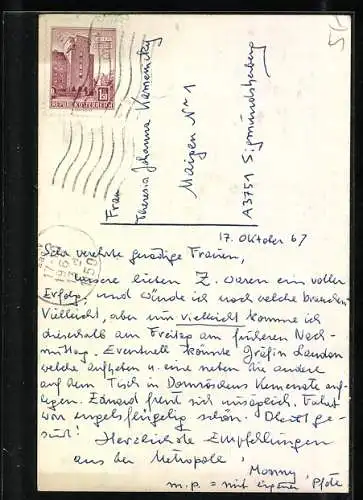 REPUBLIK ÖSTERREICH
Frau
Theresia Johanna Kamenicky
Maigen Nr 1
A3751 Sigmundsherberg
17. Oktober 67
Sehr verehrte gnädige Frauen,
unsere lieben Z. waren ein voller
Erfolg, und würde ich noch welche brauchen
Vielleicht, aber nur vielleicht komme ich
dieserhalb am Freitag am früheren Nach-
mittag. Eventuell könnte Gräfin Laudon
welche aufheben u. eine neben die andere
auf dem Tisch in Kemenate auf-
legen. Eduard freut sich unsäglich. Fahrt
war schön. ge-
sund! Herzlichste Empfehlungen
aus der Metropole,
m.p. = mit eigener Pfote